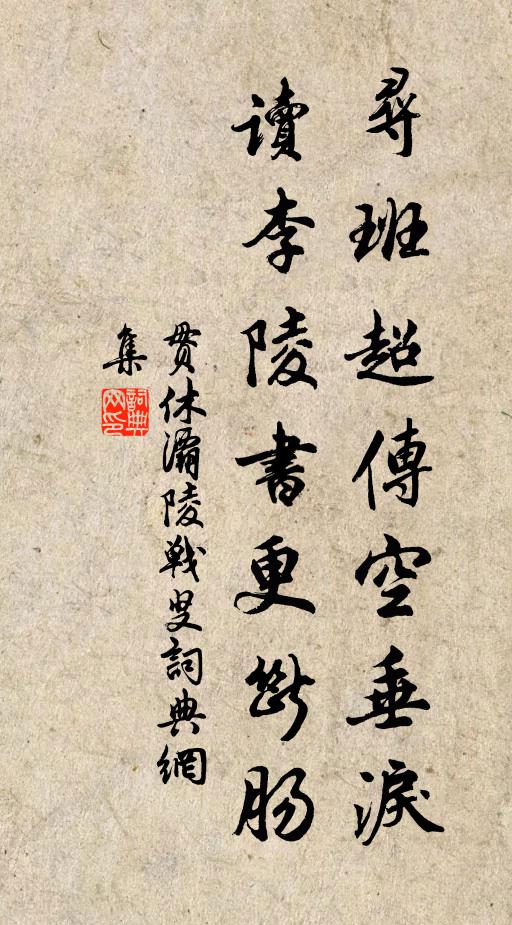 尋班超傳空垂淚
讀李陵書更斷腸
貫休灞陵戰叟詞典網
集
詞典網印